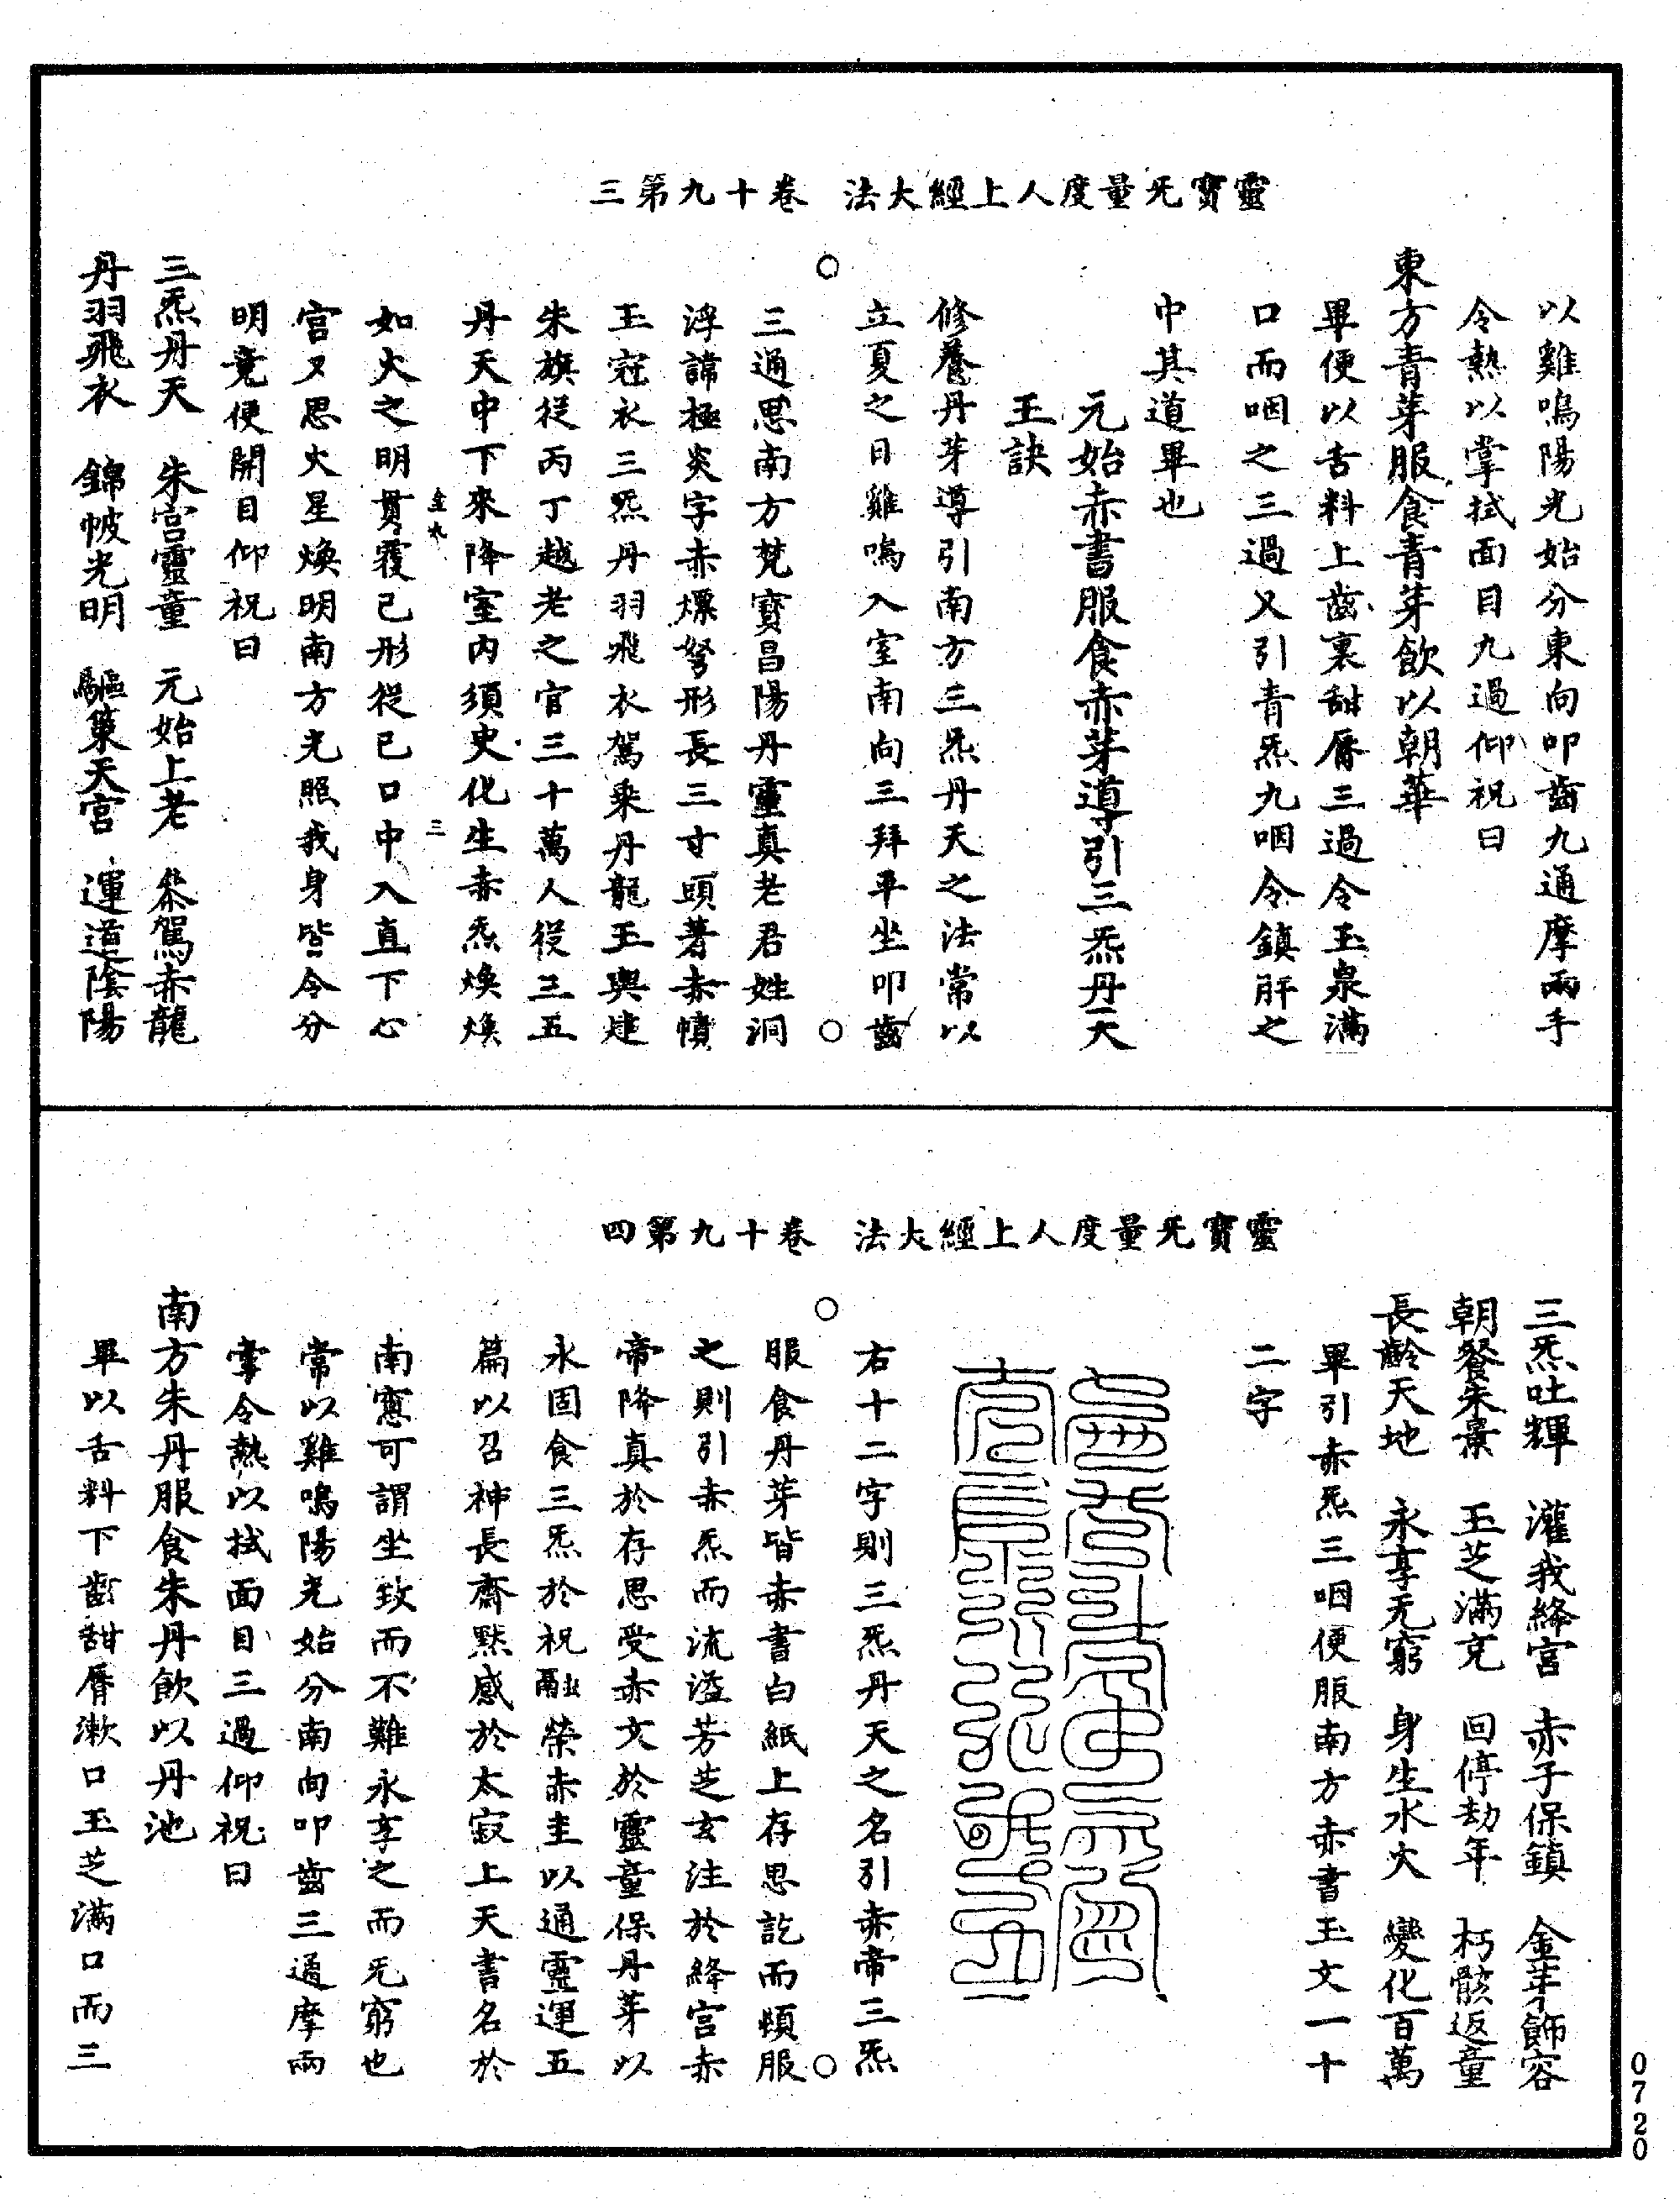 靈寶无量度人上經大法　卷十九第三
以雞鳴陽光始分東向叩齒九通摩兩手
令熱以掌拭面目九過仰祝曰
東方青芽服食青芽飲以朝華
畢便以舌料上齒裏甜脣三過令玉泉滿
口而咽之三過又引青炁九咽令鎮肝之
中其道畢也
元始赤書服食赤芽導引三炁丹天
玉訣
修養丹芽導引南方三炁丹天之法常以
立夏之日雞鳴入室南向三拜平坐叩齒
三通思南方梵寶昌陽丹靈真老君姓洞
浮諱極炎字赤熛弩形長三寸頭著赤幘
玉冠衣三炁丹羽飛衣駕乘丹龍玉輿建
朱旗從丙丁越老之官三十萬人從三五
丹天中下來降室內須臾化生赤炁煥煥
如火之明貫覆己形從己口中入直下心
宮又思火星煥明南方光照我身皆令分
明竟便開目仰祝曰
三炁丹天　朱宮靈童　元始上老　來駕赤龍
丹羽飛衣　錦帔光明　驅策天宮　運道陰陽
靈寶无量度人上經大法　卷十九第四
三炁吐輝　灌我絳宮　赤子保鎮　金羊飾容
朝餐朱景　玉芝滿充　回停劫年　朽骸返童
長齡天地　永享无窮　身生水火　變化百萬
畢引赤炁三咽便服南方赤書玉文一十
二字
右十二字則三炁丹天之名引赤帝三炁
服食丹芽皆赤書白紙上存思訖而頓服
之則引赤炁而流溢芳芝玄注於絳宮赤
帝降真於存思受赤文於靈童保丹芽以
永固食三炁於祝融榮赤圭以通靈運五
篇以召神長齋默感於太寂上天書名於
南窻可謂坐致而不難永享之而无窮也
常以雞鳴陽光始分南向叩齒三通摩兩
掌令熱以拭面目三過仰祝曰
南方朱丹服食朱丹飲以丹池
畢以舌料下齒甜脣漱口玉芝滿口而三
0720